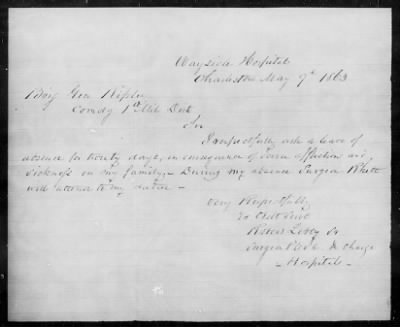 Wayside Hospital
Charleston May 9th 1863
Brig Gen Ripley
Comdg 1st Mil Dist
Sir
I respectfully ask a leave of
absence for twenty days, in consequence of severe affliction and
sickness in my family, - During my absence Surgeon
will attend to my duties -
Very Respectfully
Yr Obt Servt
Surgeon In Charge
- Hospital -